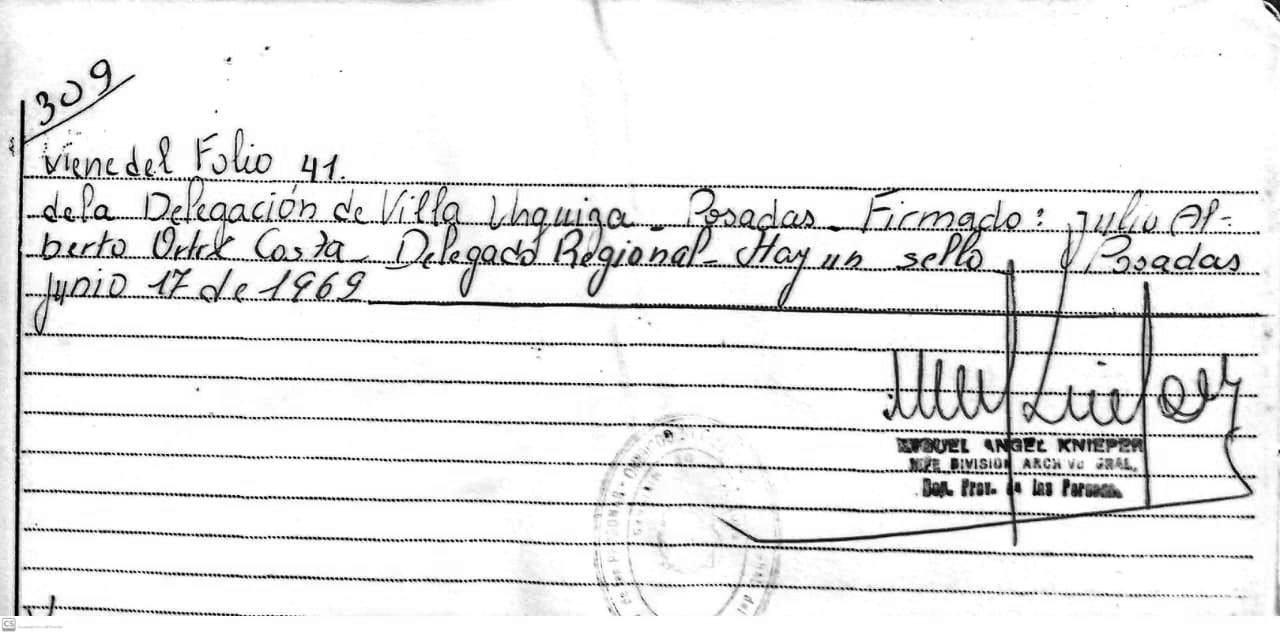 309
Viene del Folio 41.
de la Delegación de Villa Urquiza - Posadas - Firmado: Julio Al-
berto Ortiz Costa - Delegado Regional - Hay un sello Posadas
Junio 17 de 1969
MIGUEL ANGEL KNIEPER
JEFE DIVISION ARCHIVO GRAL.
Prov. de las Personas
CS